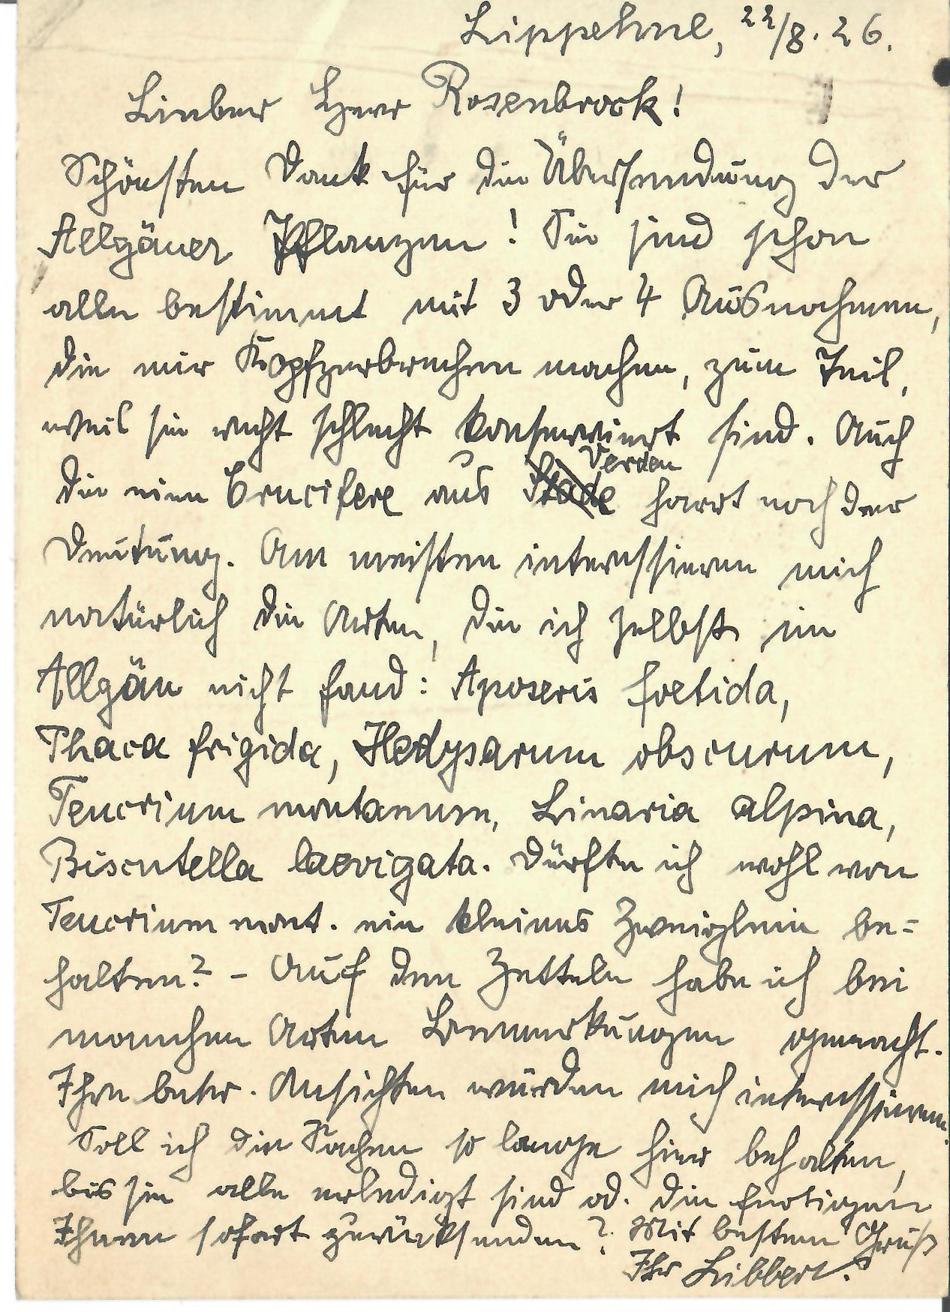 Lippehne, 22/8. 26.
Lieber Herr Rosenbrock!
Schönsten Dank für die Übersendung der
Allgäuer Pflanzen! Sie sind schon
alle bestimmt mit 3 oder 4 Ausnahmen,
die mir Kopfzerbrechen machen, zum Teil,
weil sie recht schlecht konserviert sind. Auch
die eine Crucifere aus Stade Verden harrt noch der
Deutung. Am meisten interessieren mich
natürlich die Arten, die ich selbst im
Allgäu nicht fand: Aposeris foetida,
Phaca frigida, Hedysarum obscurum,
Teucrium montanum, Linaria alpina,
Biscutella laevigata. Dürfte ich wohl von
Teucrium mont. ein kleines Zweiglein be=
halten? – Auf den Zetteln habe ich bei
manchen Arten Bemerkungen gemacht.
Ihre betr. Ansichten würden mich interessieren.
Soll ich die Sachen so lange hier behalten,
bis sie alle erledigt sind od. die fertigen
Ihnen sofort zurücksenden? Mit bestem Gruß
Ihr Libbert.